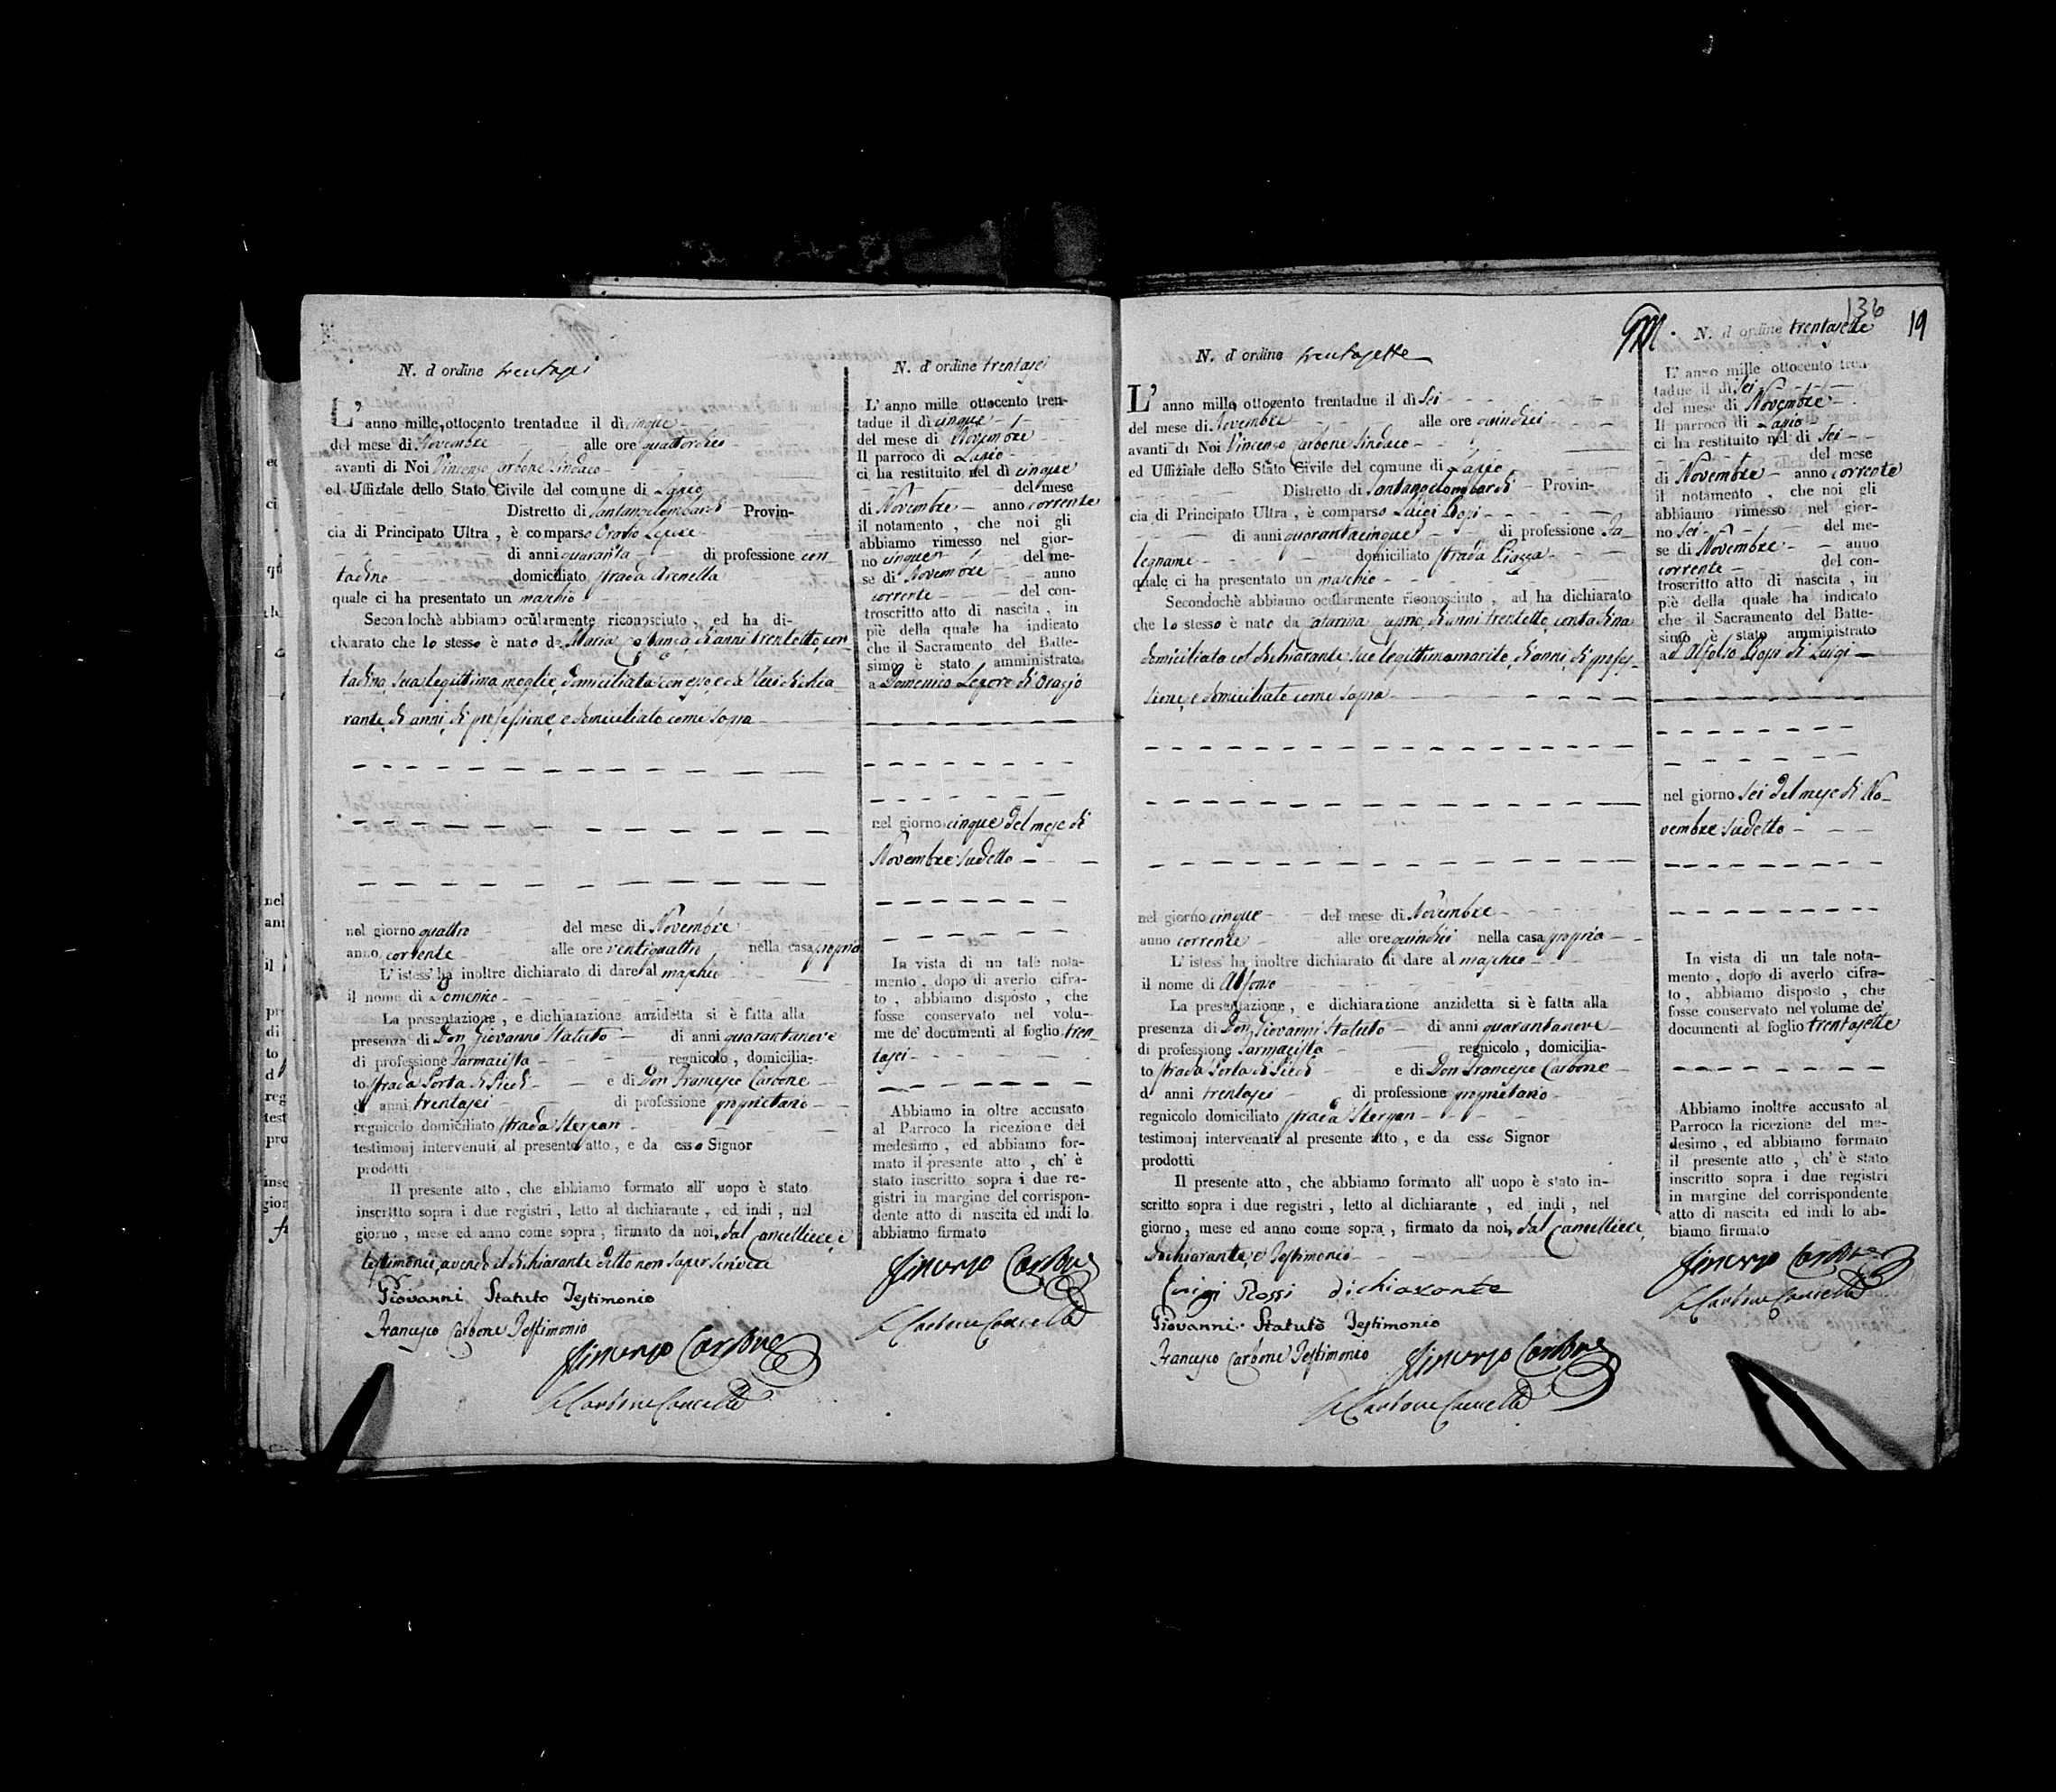 N. d'ordine trentasei
L'anno mille ottocento trentadue il dì cinque
del mese di Novembre alle ore quattordici
avanti di Noi Vincenzo Carbone Sindaco
ed Uffiziale dello Stato Civile del comune di Lapio
Distretto di Santangelombardi Provin-
cia di Principato Ultra, è comparso Orazio Lepore
di anni quaranta di professione con-
tadino domiciliato strada Arenella
quale ci ha presentato un maschio
Secondochè abbiamo ocularmente riconosciuto, ed ha di-
chiarato che lo stesso è nato da Maria Costanza, di anni trentotto, con-
tadina, sua legittima moglie, domiciliata con esso, e da lui dichia-
rante, di anni, di professione, e domiciliato come sopra
nel giorno quattro del mese di Novembre
anno corrente alle ore ventiquattro nella casa propria
L'istess' ha inoltre dichiarato di dare al maschio
il nome di Domenico
La presentazione, e dichiarazione anzidetta si è fatta alla
presenza di Don Giovanni Statuto di anni quarantanove
di professione Farmacista regnicolo, domicilia-
to strada Porta di Piedi e di Don Francesco Carbone
di anni trentasei di professione proprietario
regnicolo domiciliato strada Sterpan
testimonj intervenuti al presente atto, e da esso Signor
prodotti
Il presente atto, che abbiamo formato all' uopo è stato
inscritto sopra i due registri, letto al dichiarante, ed indi, nel
giorno, mese ed anno come sopra, firmato da noi, dal Cancelliere, e
testimonii, avendo il dichiarante detto non saper scrivere
Giovanni Statuto Testimonio
Francesco Carbone Testimonio
Vincenzo Carbone
Carbone Cancell
N. d'ordine trentasei
L'anno mille ottocento tren-
tadue il dì cinque
del mese di Novembre
Il parroco di Lapio
ci ha restituito nel dì cinque
del mese
di Novembre anno corrente
il notamento, che noi gli
abbiamo rimesso nel gior-
no cinque del me-
se di Novembre anno
corrente del con-
troscritto atto di nascita, in
piè della quale ha indicato
che il Sacramento del Batte-
simo è stato amministrato
a Domenico Lepore di Orazio
nel giorno cinque del mese di
Novembre sudetto
In vista di un tale nota-
mento, dopo di averlo cifra-
to, abbiamo disposto, che
fosse conservato nel volu-
me de' documenti al foglio tren-
tasei
Abbiamo in oltre accusato
al Parroco la ricezione del
medesimo, ed abbiamo for-
mato il presente atto, ch' è
stato inscritto sopra i due re-
gistri in margine del corrispon-
dente atto di nascita ed indi lo
abbiamo firmato
Vincenzo Carbone
Carbone Cancell
136
19
N. d'ordine trentasette
L'anno mille ottocento trentadue il dì Sei
del mese di Novembre alle ore quindici
avanti di Noi Vincenzo Carbone Sindaco
ed Uffiziale dello Stato Civile del comune di Lapio
Distretto di Santangelombardi Provin-
cia di Principato Ultra, è comparso Luigi Rossi
di anni quarantacinque di professione Fa-
legname domiciliato strada Piazza
quale ci ha presentato un maschio
Secondochè abbiamo ocularmente riconosciuto, ad ha dichiarato
che lo stesso è nato da Catarina di anni trentotto, contadina
domiciliata col dichiarante suo legittimo marito, di anni, di profes-
sione, e domiciliato come sopra
nel giorno cinque del mese di Novembre
anno corrente alle ore quindici nella casa propria
L'istess' ha inoltre dichiarato di dare al maschio
il nome di Alfonso
La presentazione, e dichiarazione anzidetta si è fatta alla
presenza di Don Giovanni Statuto di anni quarantanove
di professione Farmacista regnicolo, domicilia-
to strada Porta di Piedi e di Don Francesco Carbone
d anni trentasei di professione proprietario
regnicolo domiciliato strada Sterpan
testimonj intervenuti al presente atto, e da esso Signor
prodotti
Il presente atto, che abbiamo formato all' uopo è stato in-
scritto sopra i due registri, letto al dichiarante, ed indi, nel
giorno, mese ed anno come sopra, firmato da noi, dal Cancelliere,
Dichiarante, e Testimonio
Luigi Rossi dichiarante
Giovanni Statuto Testimonio
Francesco Carbone Testimonio
Vincenzo Carbone
Carbone Cancell
N. d'ordine trentasette
L'anno mille ottocento tren-
tadue il dì Sei
del mese di Novembre
Il parroco di Lapio
ci ha restituito nel dì Sei
del mese
di Novembre anno corrente
il notamento, che noi gli
abbiamo rimesso nel gior-
no sei del me-
se di Novembre anno
corrente del con-
troscritto atto di nascita, in
piè della quale ha indicato
che il Sacramento del Batte-
simo è stato amministrato
ad Alfonso Rossi di Luigi
nel giorno sei del mese di No-
vembre sudetto
In vista di un tale nota-
mento, dopo di averlo cifra-
to, abbiamo disposto, che
fosse conservato nel volume de'
documenti al foglio trentasette
Abbiamo inoltre accusato al
Parroco la ricezione del me-
desimo, ed abbiamo formato
il presente atto, ch' è stato
inscritto sopra i due registri
in margine del corrispondente
atto di nascita ed indi lo ab-
biamo firmato
Vincenzo Carbone
Carbone Cancell